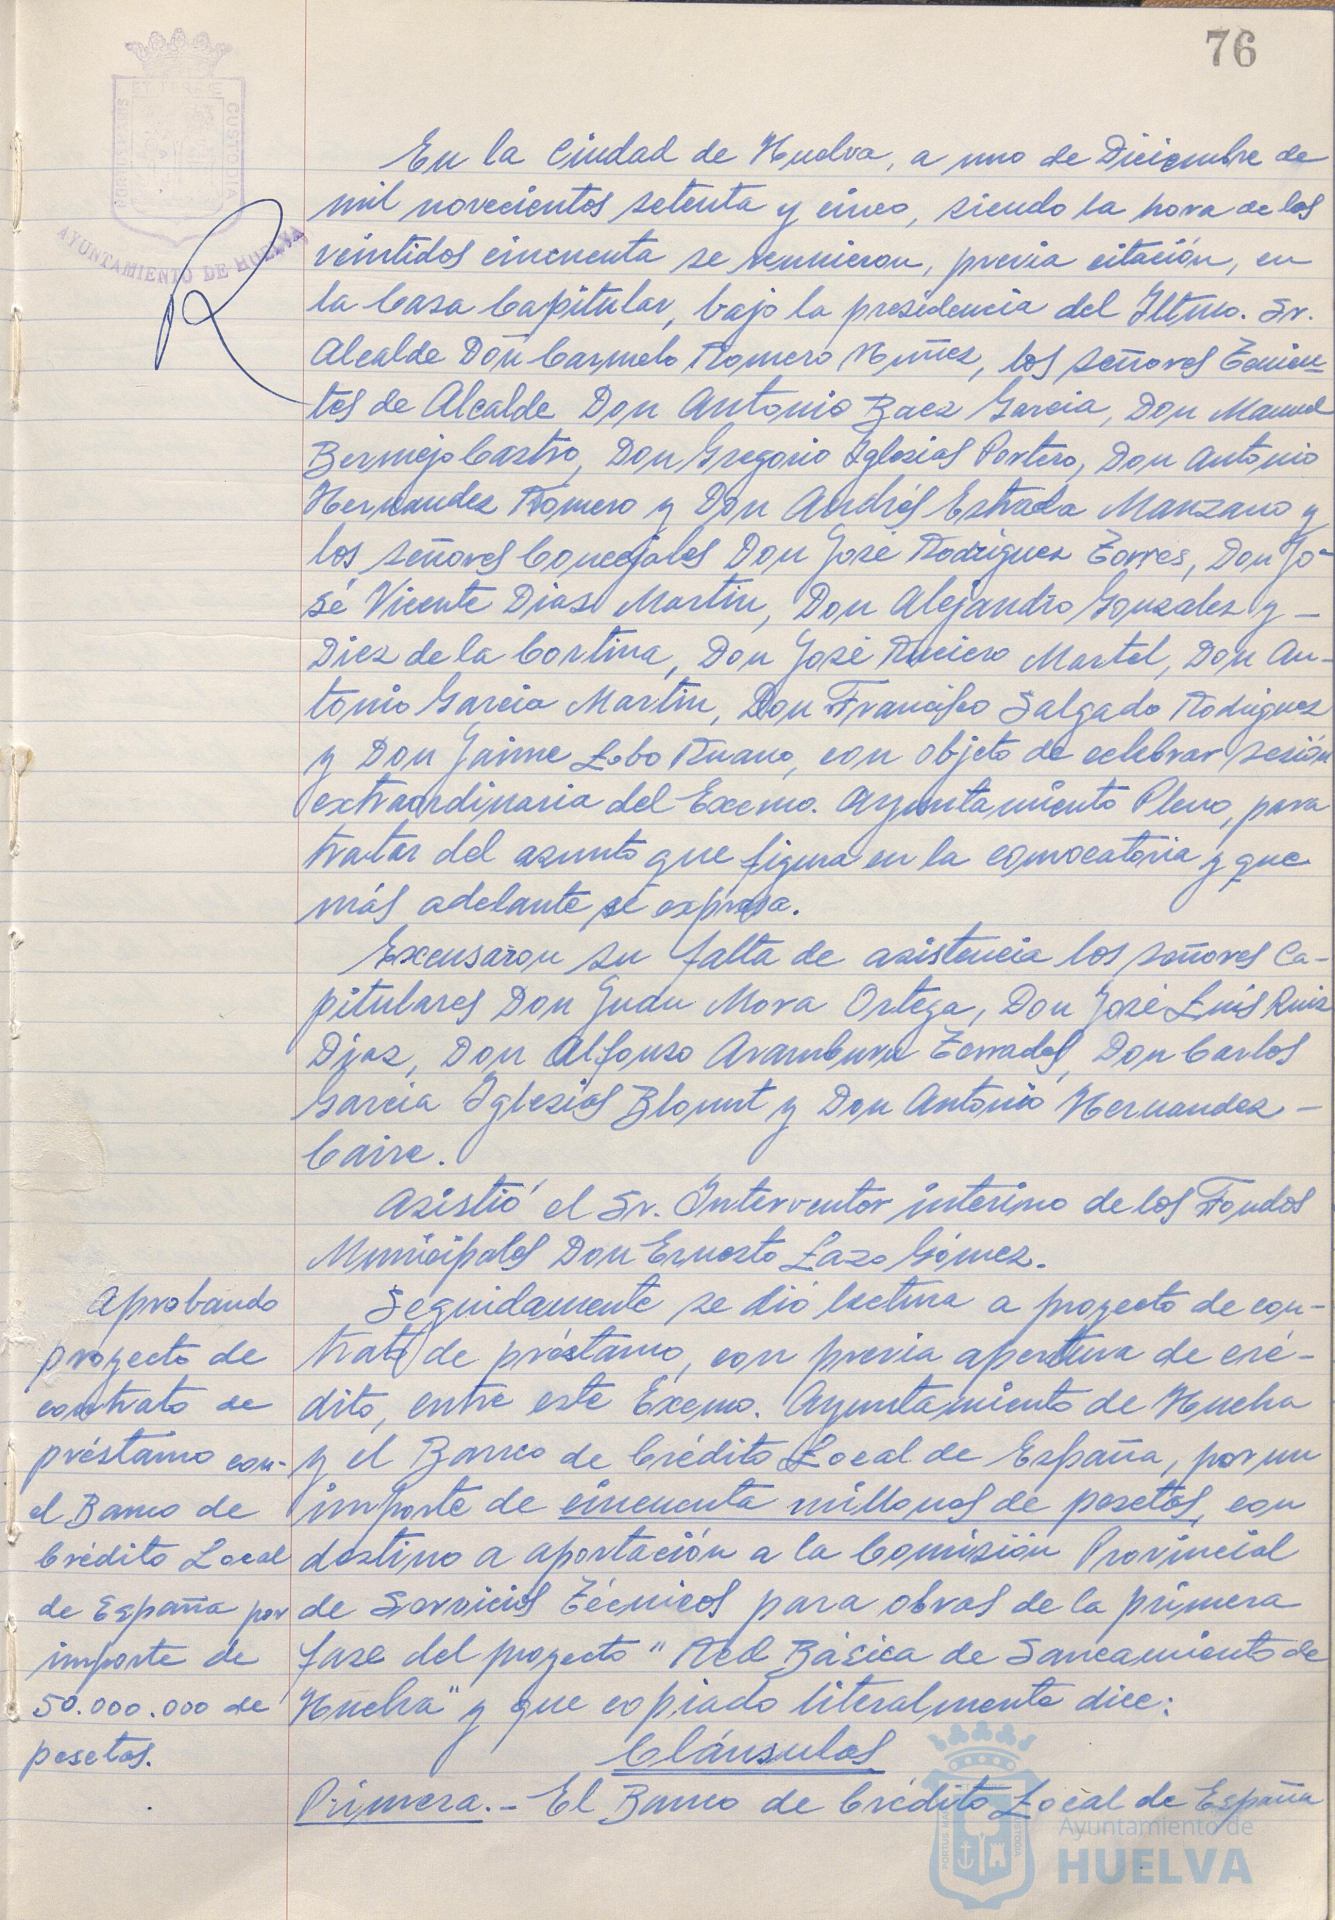 76
PORTUS MARIS ET TERRE CUSTODIA
AYUNTAMIENTO DE HUELVA
En la Ciudad de Huelva, a uno de Diciembre de
mil novecientos setenta y cinco, siendo la hora de las
veintidos cincuenta se reunieron, previa citación, en
la Casa Capitular, bajo la presidencia del Iltmo. Sr.
Alcalde Don Carmelo Romero Nuñez, los señores Tenien-
tes de Alcalde Don Antonio Baez Garcia, Don Manuel
Bermejo Castro, Don Gregorio Iglesias Portero, Don Antonio
Hernandez Romero y Don Andrés Estrada Manzano y
los señores Concejales Don José Rodriguez Torres, Don Jo-
sé Vicente Diaz Martin, Don Alejandro Gonzalez y -
Diez de la Cortina, Don José Ruciero Martel, Don An-
tonio Garcia Martin, Don Francisco Salgado Rodriguez
y Don Jaime Lobo Ruano, con objeto de celebrar sesión
extraordinaria del Excmo. Ayuntamiento Pleno, para
tratar del asunto que figura en la convocatoria y que
más adelante se expresa.
Excusaron su falta de asistencia los señores Ca-
pitulares Don Juan Mora Ortega, Don José Luis Ruiz
Diaz, Don Alfonso Aramburu Terrades, Don Carlos
Garcia Iglesias Blount y Don Antonio Hernandez -
Caire.
Asistió el Sr. Interventor interino de los Fondos
Municipales Don Ernesto Lazo Gómez.
Aprobando
proyecto de
contrato de
préstamo con-
el Banco de
Crédito Local
de España por
importe de
50.000.000 de
pesetas.
Seguidamente se dió lectura a proyecto de con-
trato de préstamo, con previa apertura de cré-
dito, entre este Excmo. Ayuntamiento de Huelva
y el Banco de Crédito Local de España, por un
importe de cincuenta millones de pesetas, con
destino a aportación a la Comisión Provincial
de Servicios Técnicos para obras de la primera
fase del proyecto "Red Básica de Saneamiento de
Huelva" y que copiado literalmente dice:
Cláusulas
Primera.- El Banco de Crédito Local de España
Ayuntamiento de
HUELVA